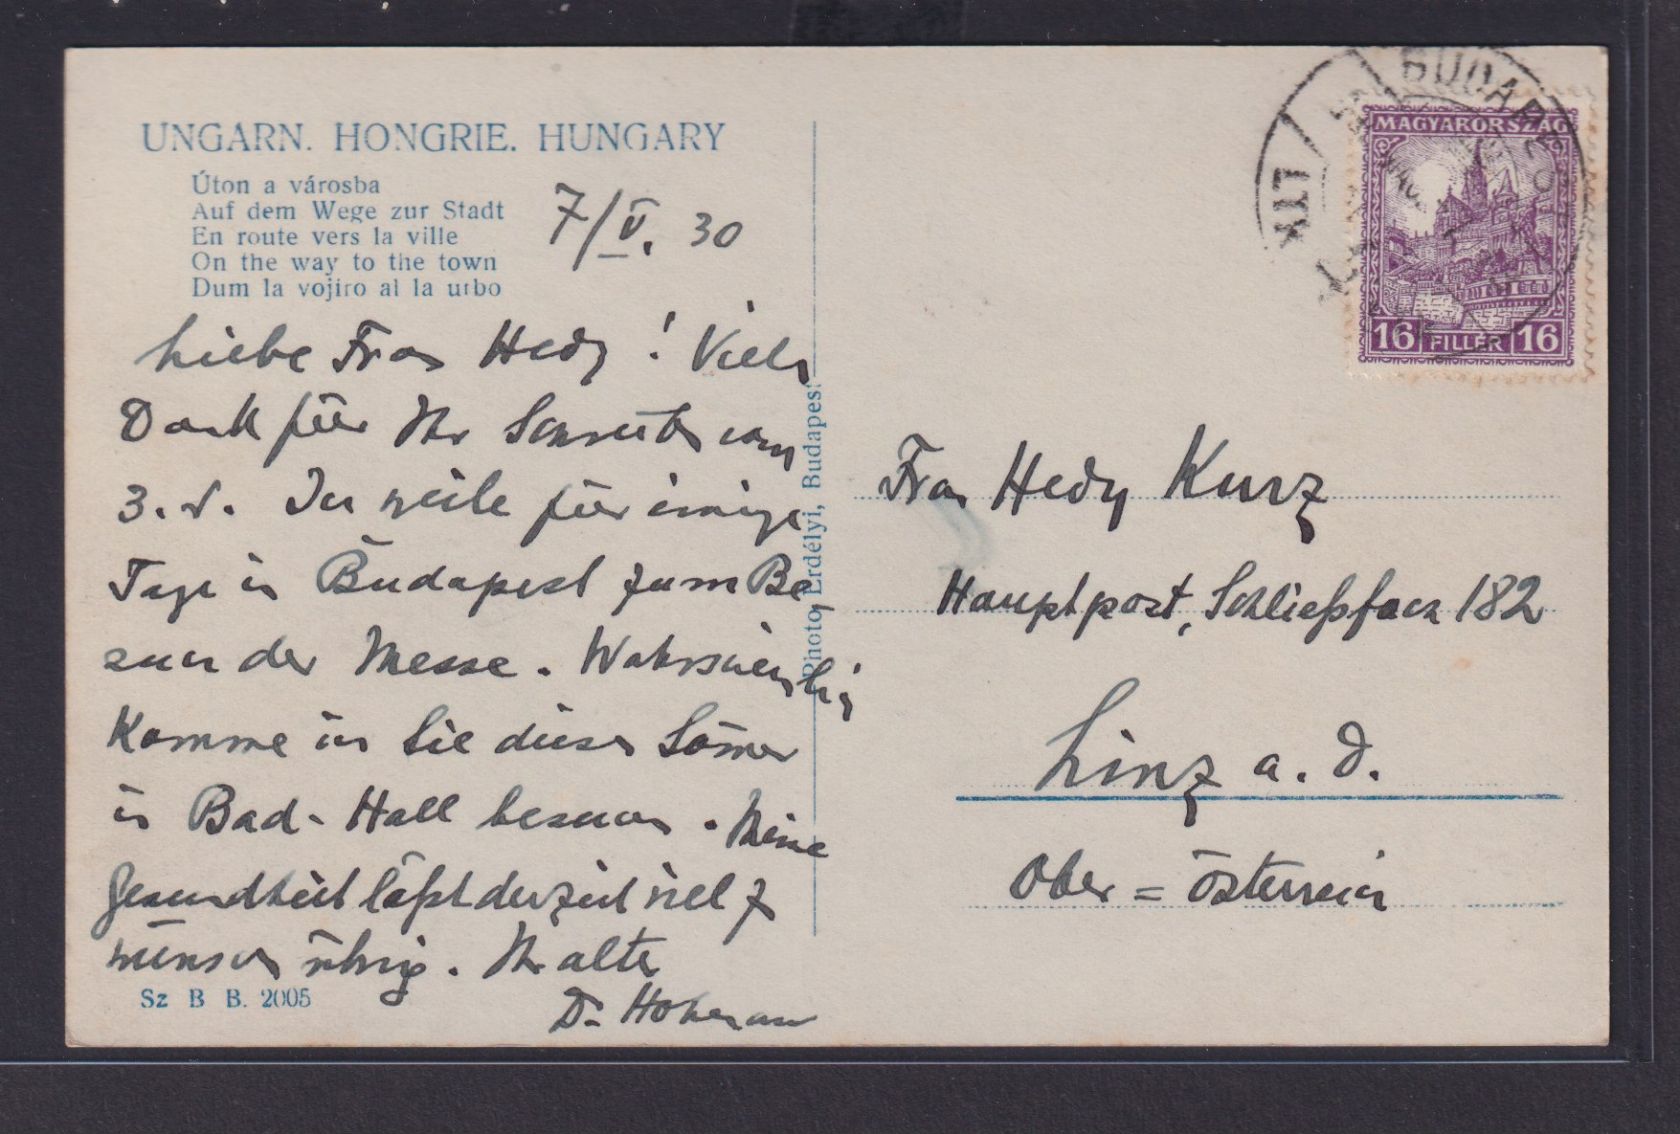 UNGARN. HONGRIE. HUNGARY
Úton a városba
Auf dem Wege zur Stadt
En route vers la ville
On the way to the town
Dum la vojiro al la urbo
7/V. 30
Liebe Frau Hedy! Viele
Dank für Ihr Schreiben vom
3. d. Ich weile für einige
Tage in Budapest zum Be
such der Messe. Wahrscheinlich
komme ich Sie diesen Som̄er
in Bad-Hall besuchen. Meine
Gesundheit läßt derzeit viel z
wünschen übrig. Ihr alter
Dr.
Sz B B. 2005
Photo, Erdélyi, Budapest
BUDAPEST
MAGYARORSZÁG
16 FILLÉR 16
Frau Hedy Kurz
Hauptpost, Schließfach 182
Linz a. D.
Ober = Österreich